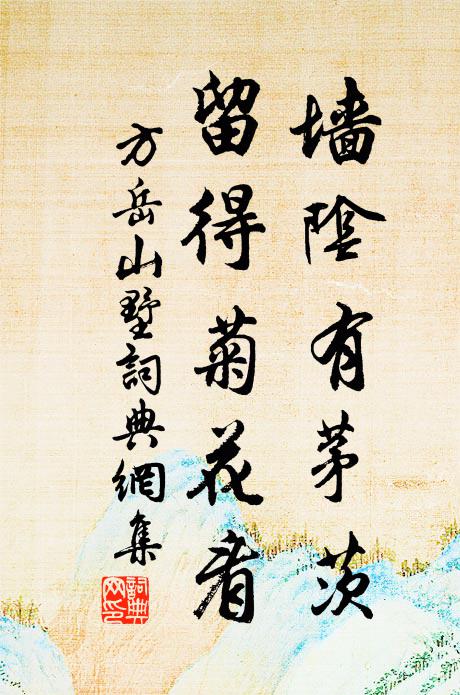 墙阴有茅茨
留得菊花看
方岳山墅詞典網集
詞典网印